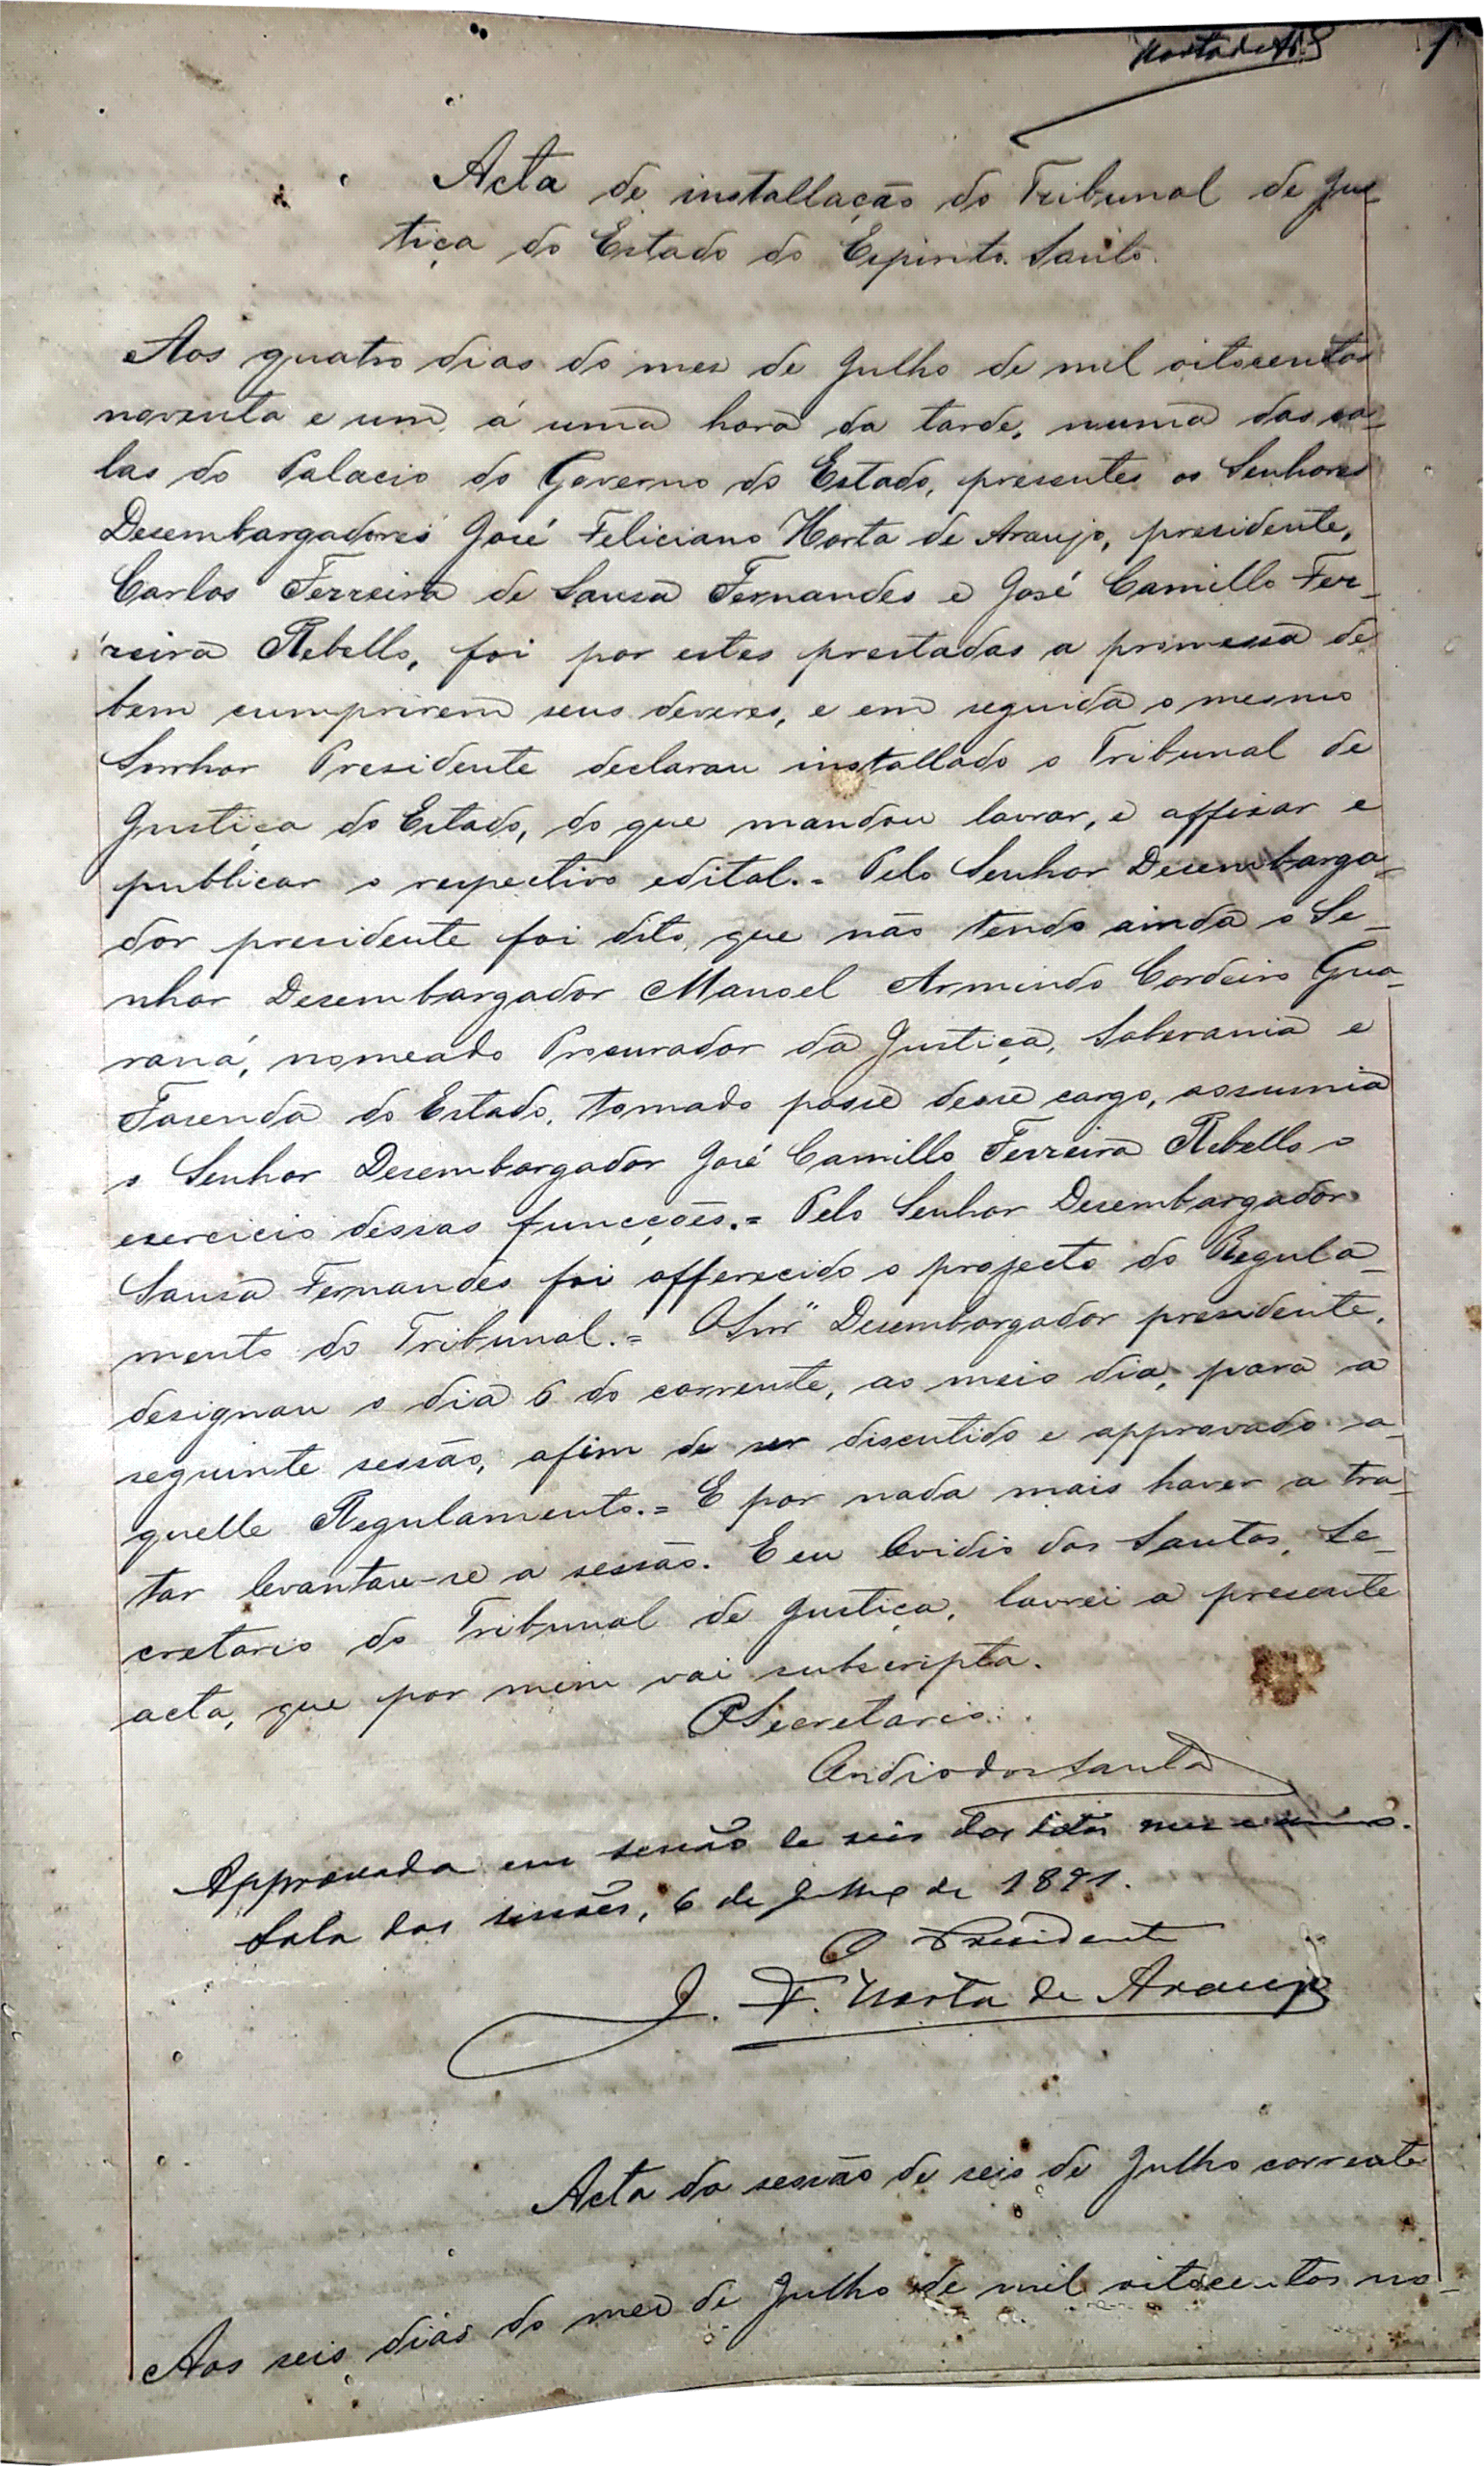 Horta de A 1
Acta de installação do Tribunal de Jus
tiça do Estado do Espirito Santo.
Aos quatro dias do mez de Julho de mil oitocentos
noventa e um, á uma hora da tarde, numa das sa-
las do Palacio do Governo do Estado, presentes os Senhores
Desembargadores José Feliciano Horta de Araujo, presidente,
Carlos Ferreira de Sousa Fernandes e José Camillo Fer-
reira Rebello, foi por estes prestadas a promessa de
bem cumprirem seus deveres, e em seguida o mesmo
Senhor Presidente declarou installado o Tribunal de
Justiça do Estado, do que mandou lavrar, e affixar e
publicar o respectivo edital.= Pelo Senhor Desembarga-
dor presidente foi dito, que não tendo ainda o Se-
nhor Desembargador Manoel Armindo Cordeiro Gua-
raná, nomeado Procurador da Justiça, Soberania e
Fasenda do Estado, tomado posse desse cargo, assumia
o Senhor Desembargador José Camillo Ferreira Rebello o
exercicio dessas funcções.= Pelo Senhor Desembargador
Sousa Fernandes foi offerecido o projecto do Regula-
mento do Tribunal.= O Snr" Desembargador presidente,
designou o dia 6 do corrente, ao meio dia, para a
seguinte sessão, afim de ser discutido e approvado a-
quelle Regulamento.= E por nada mais haver a tra-
tar levantou-se a sessão. E eu Ovidio dos Santos, Se-
cretario do Tribunal de Justiça, lavrei a presente
acta, que por mim vai subscripta.
O Secretario:
Ovidio dos Santos
Approvada em sessão de seis dos ditos mez e anno.
Sala das sessões, 6 de Julho de 1891.
O Presidente
J. F. Horta de Araujo
Acta da sessão de seis de Julho corrente
Aos seis dias do mez de Julho de mil oitocentos no-